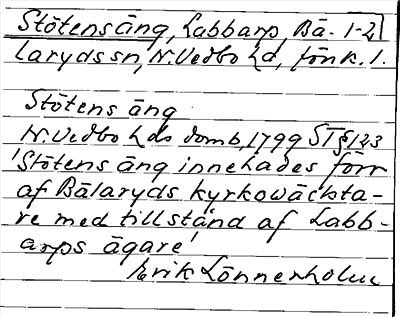 Stötensäng, Labbarp, Bä- 1-2
larydssn, N. Vedbo hd, Jönk. l.
Stötens äng
N. Vedbo hds domb, 1799 ST § 123
'Stötens äng innehades förr
af Bälaryds kyrkowäckta-
re med tillstånd af Labb-
arps ägare'
Erik Lönnerholm